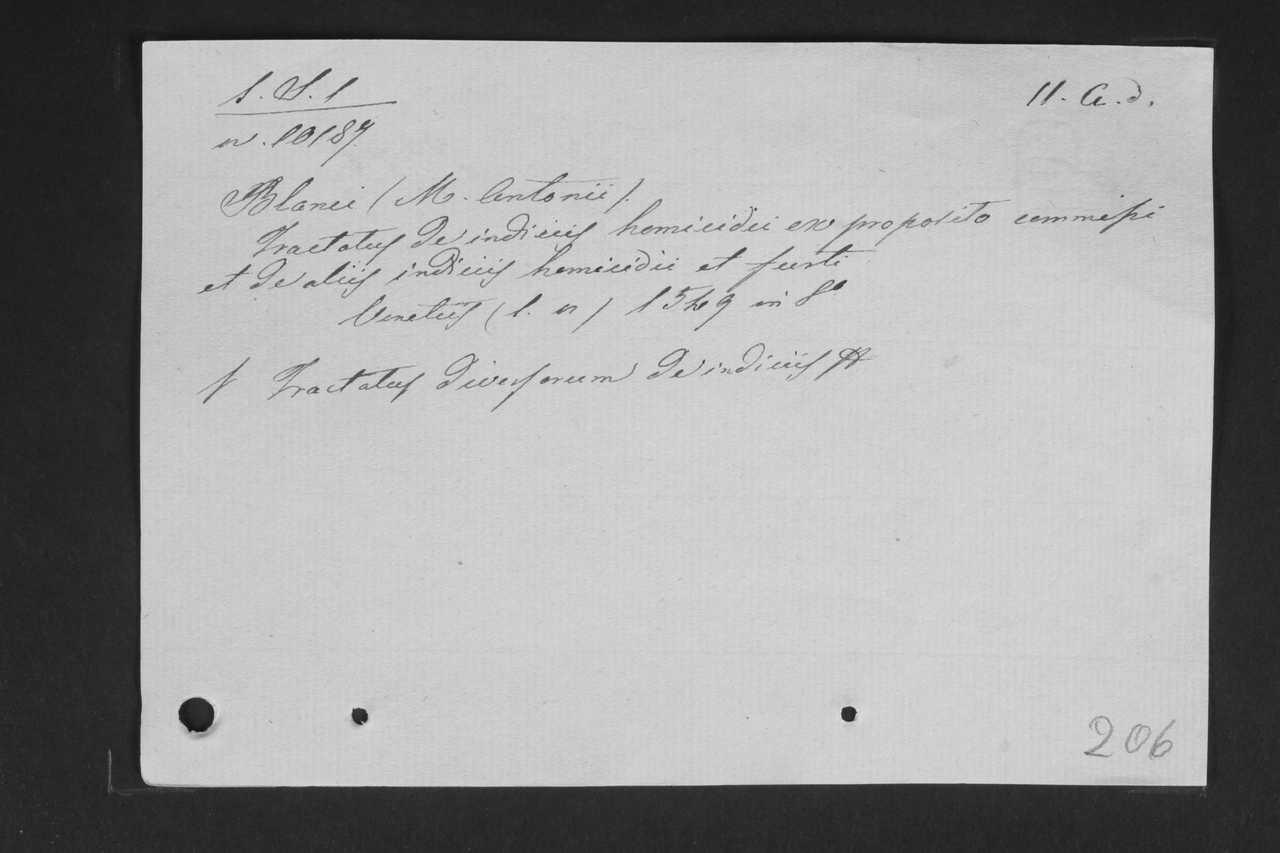 S. S. 1
n. 10187
11. a. d.
Blanci (M. Antonii).
Tractatus de indiciis homicidii ex proposito commissi
et de aliis indiciis homicidii et furti
Venetiis (s. n) 1549 in 8º
Tractatus diversorum de indiciis
206